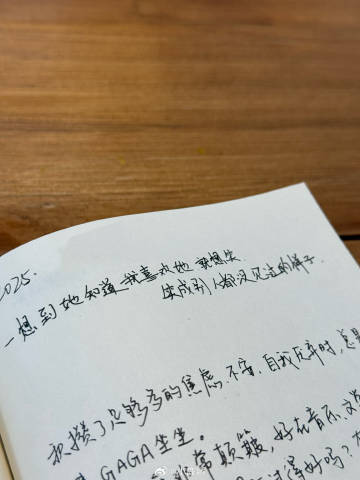 2025.
一想到她知道我喜欢她 就想哭
哭成别人都没见过的样子.
我攒了足够多的焦虑、不安、自我厌弃时，总是
GAGA坐坐。
非常颠簸，好在音乐、文
过得好吗？